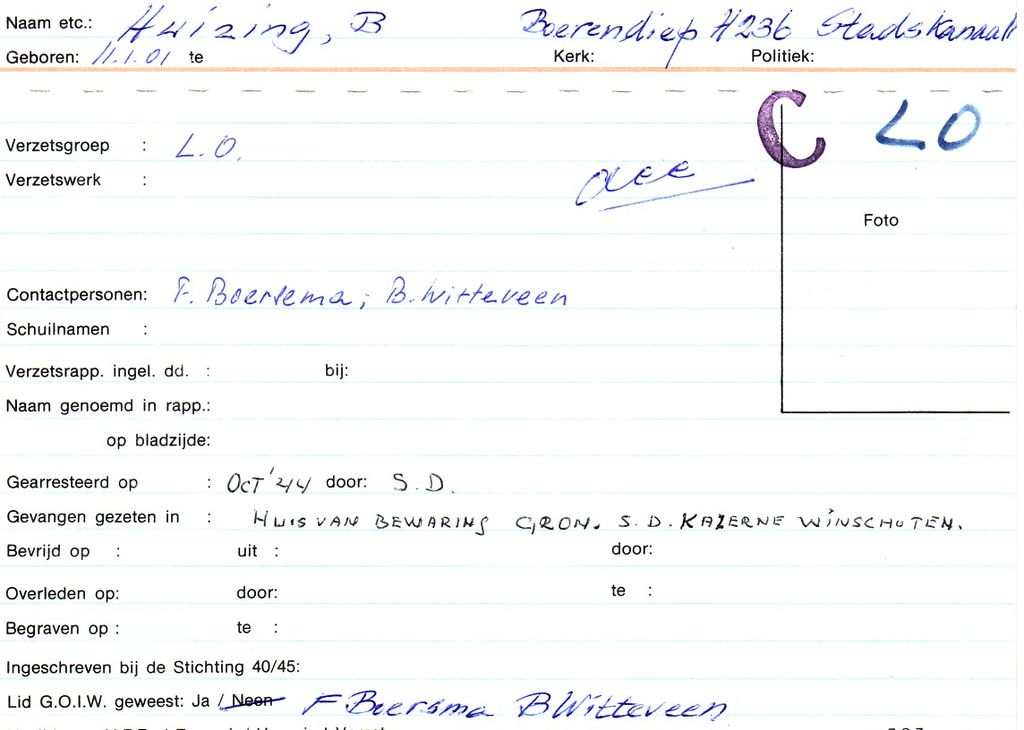 Naam etc.: Huizing, B Boerendiep H236 Stadskanaal
Geboren: 11.1.01 te Kerk: Politiek:
C LO
Verzetsgroep : L.O.
Verzetswerk :
Foto
Contactpersonen: F. Boersema; B. Witteveen
Schuilnamen :
Verzetsrapp. ingel. dd. : bij:
Naam genoemd in rapp.:
op bladzijde:
Gearresteerd op : OCT '44 door: S.D.
Gevangen gezeten in : HUIS VAN BEWARING GRON. S.D. KAZERNE WINSCHOTEN.
Bevrijd op : uit : door:
Overleden op: door: te :
Begraven op : te :
Ingeschreven bij de Stichting 40/45:
Lid G.O.I.W. geweest: Ja / Neen F Boersma B Witteveen